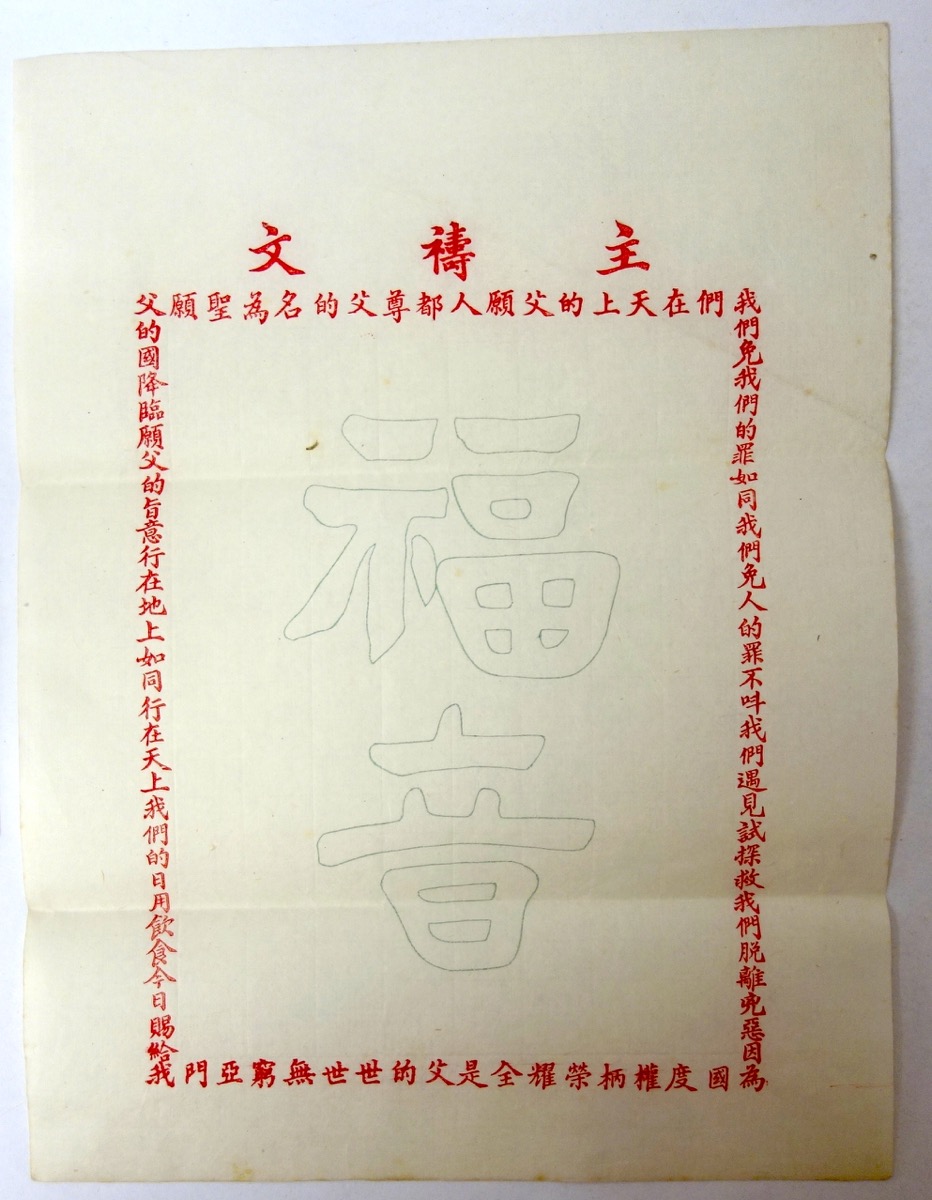 主禱文
我們在天上的父願人都尊父的名為聖願
父的國降臨願父的旨意行在地上如同行在天上我們的日用飲食今日賜給我
們免我們的罪如同我們免人的罪不呌我們遇見試探救我們脫離兇惡因為
國度權柄榮耀全是父的世世無窮亞門
福音